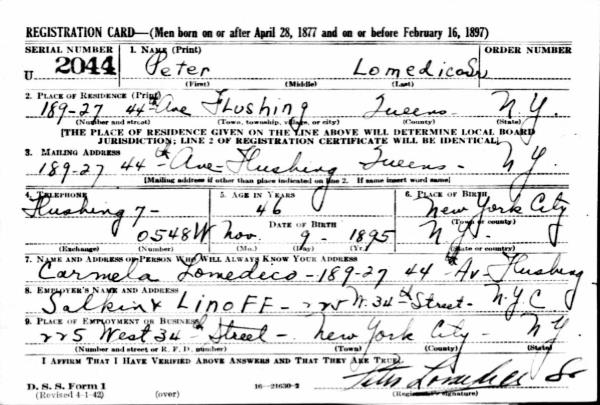 REGISTRATION CARD—(Men born on or after April 28, 1877 and on or before February 16, 1897)
SERIAL NUMBER 1. NAME (Print) ORDER NUMBER
U 2044 Peter Lomedico Sr
(First) (Middle) (Last)
2. PLACE OF RESIDENCE (Print)
189-27 44th Ave Flushing Queens N.Y.
(Number and street) (Town, township, village, or city) (County) (State)
[THE PLACE OF RESIDENCE GIVEN ON THE LINE ABOVE WILL DETERMINE LOCAL BOARD
JURISDICTION; LINE 2 OF REGISTRATION CERTIFICATE WILL BE IDENTICAL]
3. MAILING ADDRESS
189-27 44th Ave-Flushing Queens- N.Y
[Mailing address if other than place indicated on line 2. If same insert word same]
4. TELEPHONE 5. AGE IN YEARS 6. PLACE OF BIRTH
Flushing 7- 46 New York City
DATE OF BIRTH
0548W Nov. 9 - 1895 N.Y.
(Exchange) (Number) (Mo.) (Day) (Yr.) (State or country)
7. NAME AND ADDRESS OF PERSON WHO WILL ALWAYS KNOW YOUR ADDRESS
Carmela Lomedico-189-27 44th Av-Flushing
8. EMPLOYER'S NAME AND ADDRESS
Salkin & Linoff - 225 W. 34th Street- N.Y.C
9. PLACE OF EMPLOYMENT OR BUSINESS
225 West 34th Street- New York City- N.Y.
(Number and street or R. F. D. number) (Town) (County) (State)
I AFFIRM THAT I HAVE VERIFIED ABOVE ANSWERS AND THAT THEY ARE TRUE.
Peter Lomedico Sr
D. S. S. Form 1
(Revised 4-1-42) (over) 16—21630-2 (Registrant's signature)